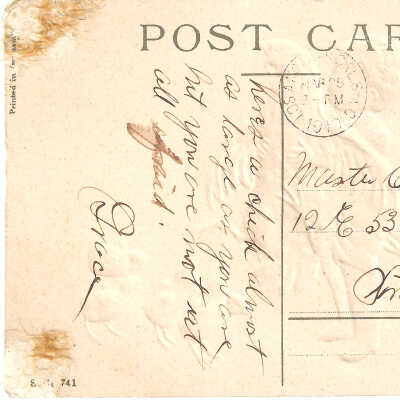 POST CAR
Printed in
MAR 25
PM
heres a chick almost
as large as you are
but you are not at
all afraid!
Grace
Master
12 E 53
741